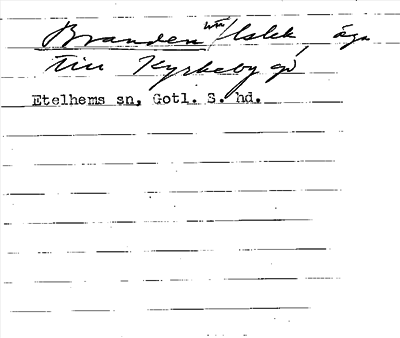 Branden /lslek, äga
till Kyrkeby gd
Etelhems sn, Gotl. S. hd.